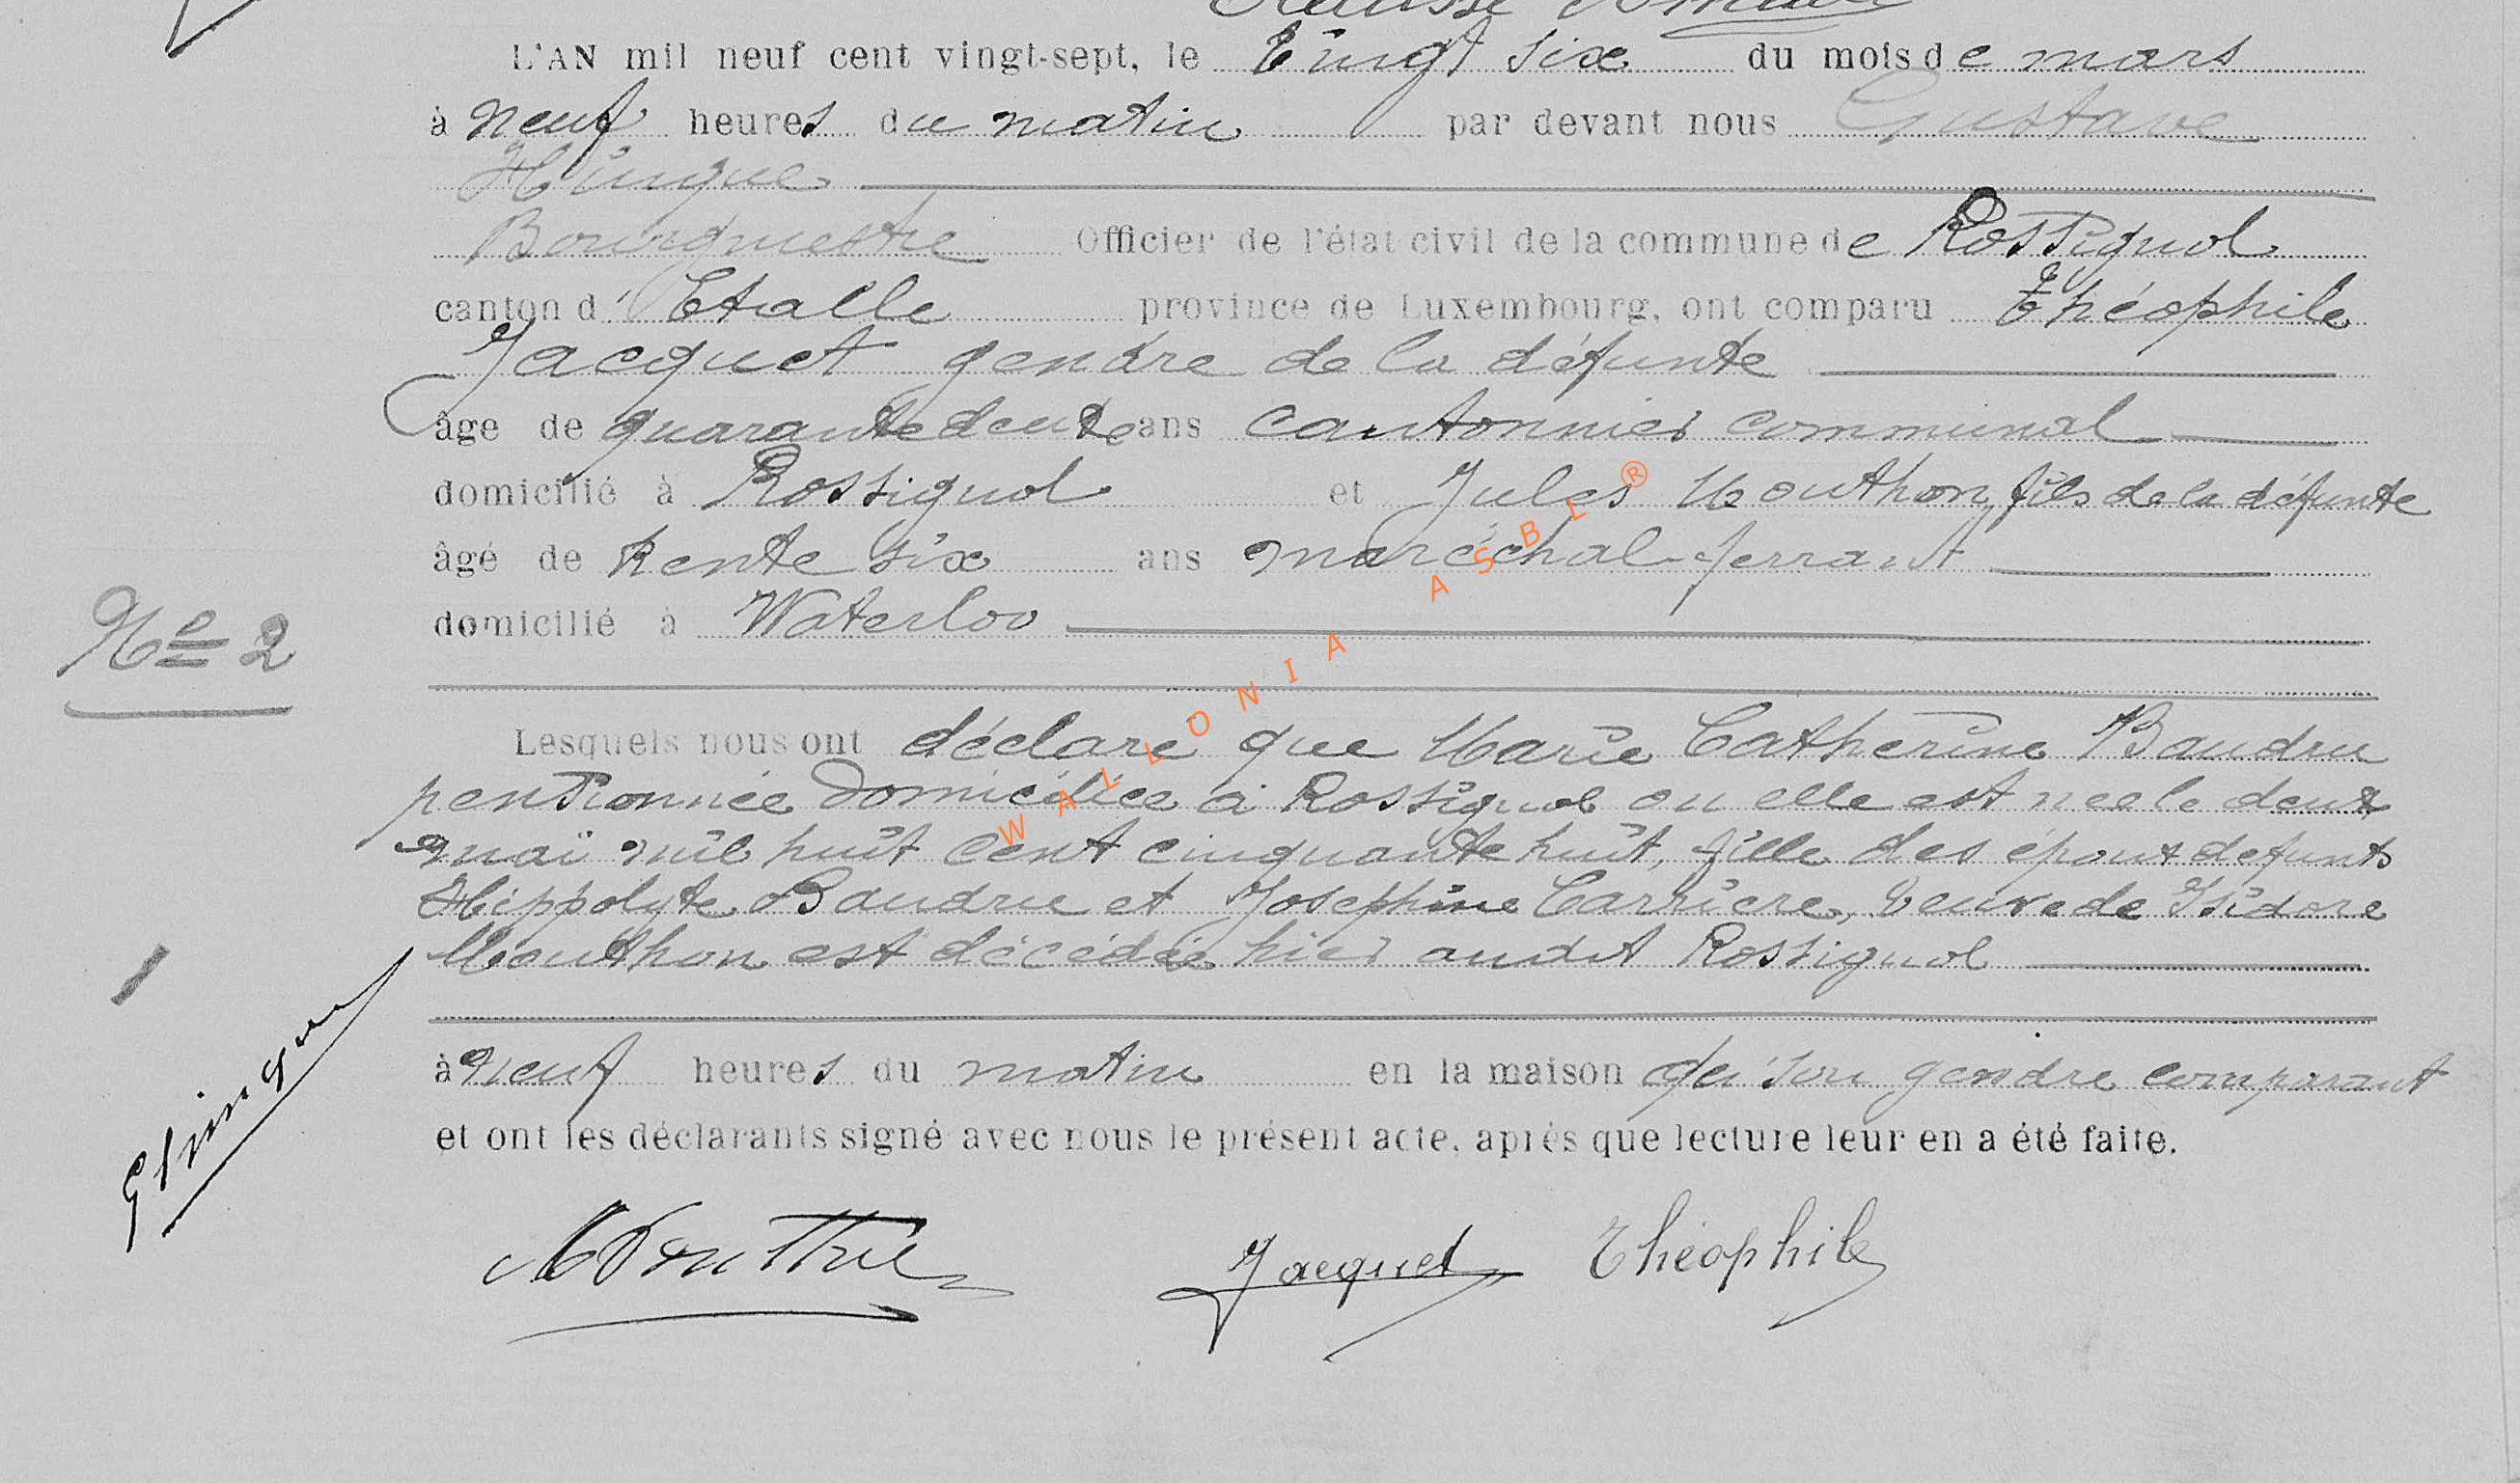 L'AN mil neuf cent vingt-sept, le Vingt six du mois de mars
à neuf heures du matin par devant nous Gustave
Hingue
Bourgmestre Officier de l'état civil de la commune de Rossignol
canton d'Etalle province de Luxembourg, ont comparu Théophile
Jacquet gendre de la défunte
âge de quarante deux ans cantonnier communal
domicilié à Rossignol et Jules Mouthon, fils de la défunte
âgé de trente six ans maréchal-ferrant
domicilié à Waterloo
No 2
Lesquels nous ont déclaré que Marie Catherine Baudru
pensionnée domiciliée à Rossignol ou elle est née le deux
mai mil huit cent cinquante huit, fille des époux defunts
Hippolyte Baudru et Joséphine Carrière, Veuve de Isidore
Mouthon est décédée hier audit Rossignol
à neuf heures du matin en la maison de son gendre comparant
et ont les déclarants signé avec nous le présent acte, après que lecture leur en a été faite.
Jacquet Théophile
WALLONIA ASBL®